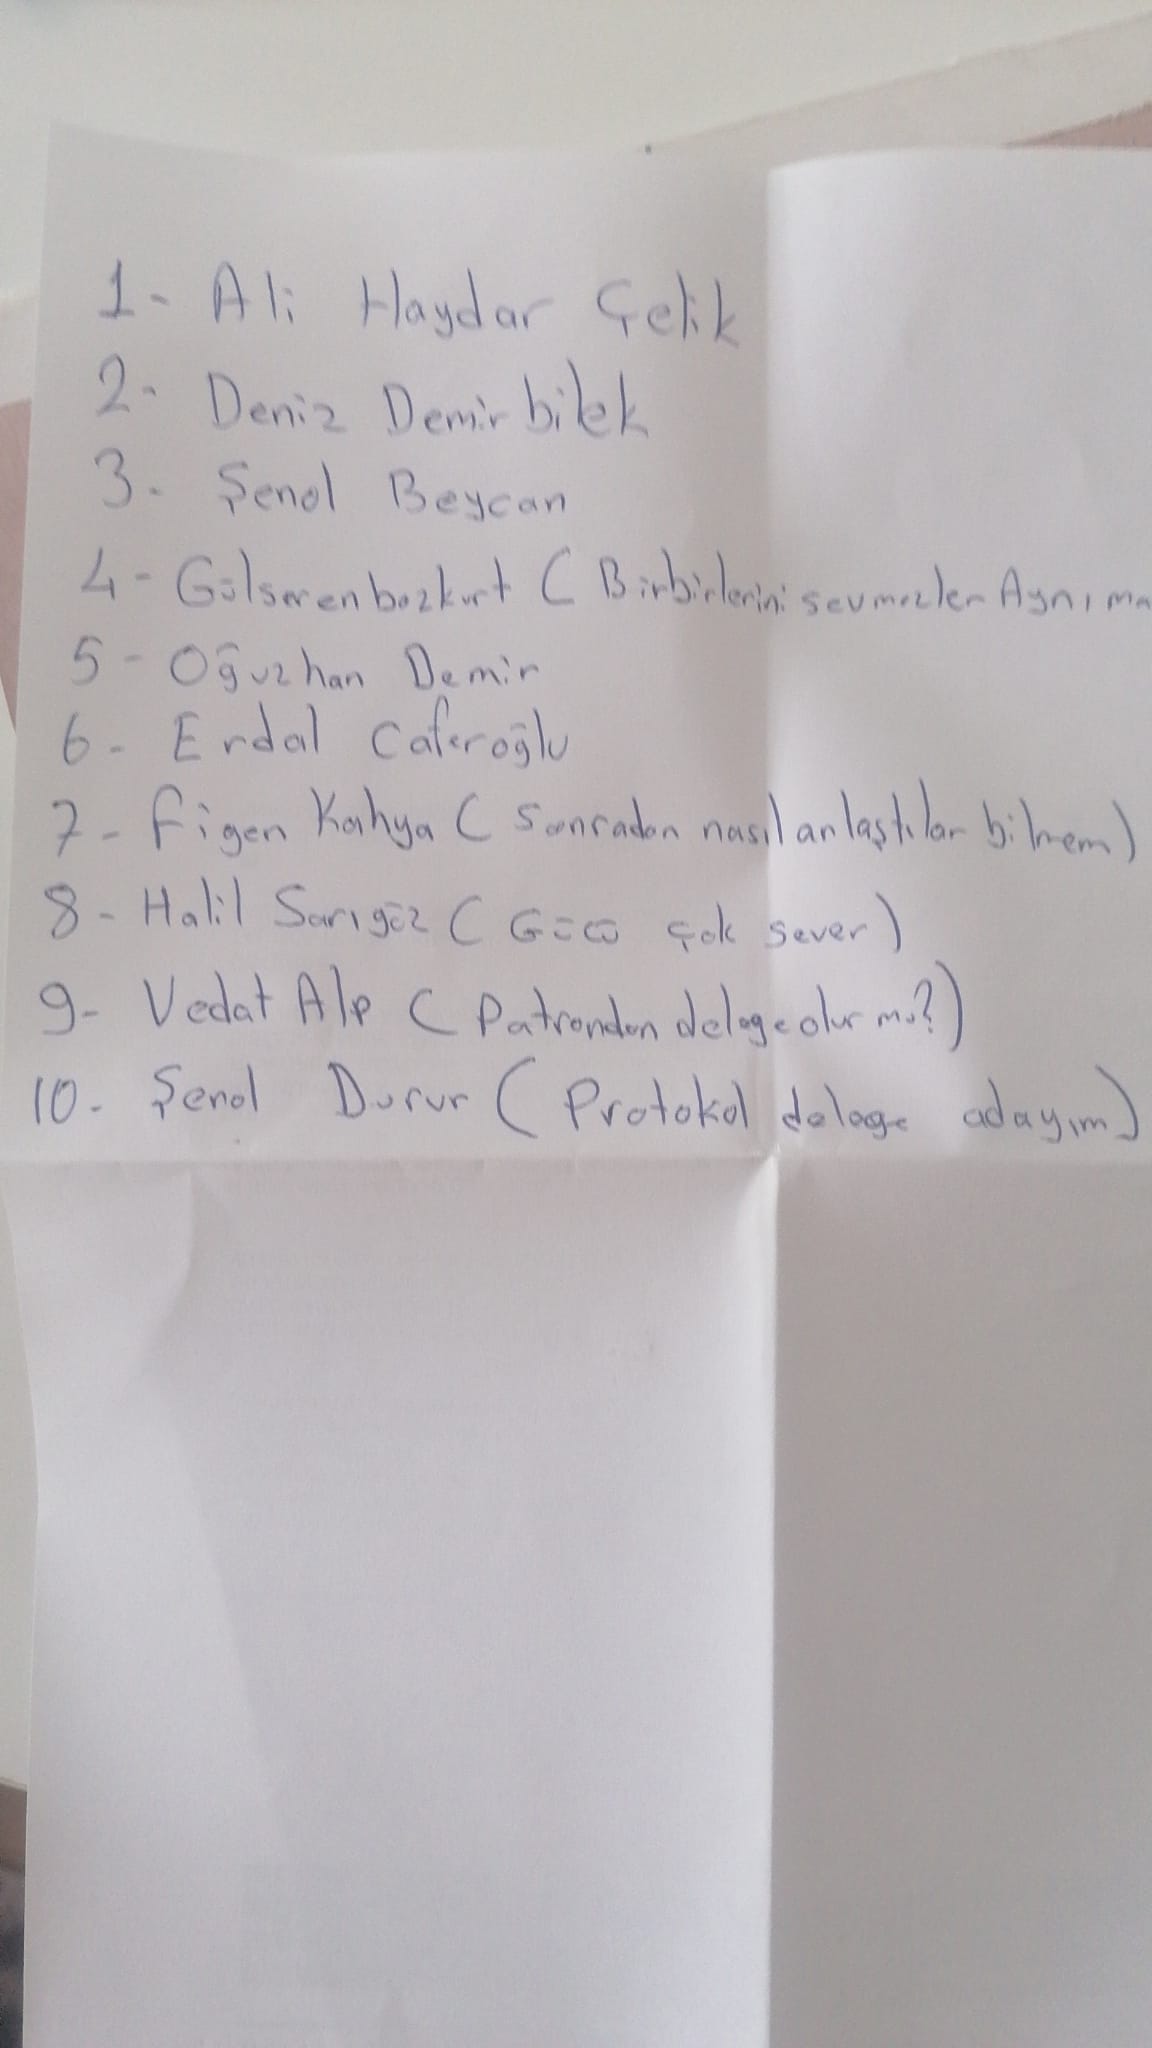 1- Ali Haydar Çelik
2- Deniz Demirbilek
3- Şenol Beycan
4- Gülseren bozkurt ( Birbirlerini sevmezler Aynı ma
5- Oğuzhan Demir
6- Erdal Caferoğlu
7- Figen Kahya ( Sonradan nasıl anlaştılar bilmem)
8- Halil Sarıgöz ( Gücü çok sever)
9- Vedat Alp ( Patrondan delege olur mu?)
10- Şenol Durur ( Protokol delege adayım)